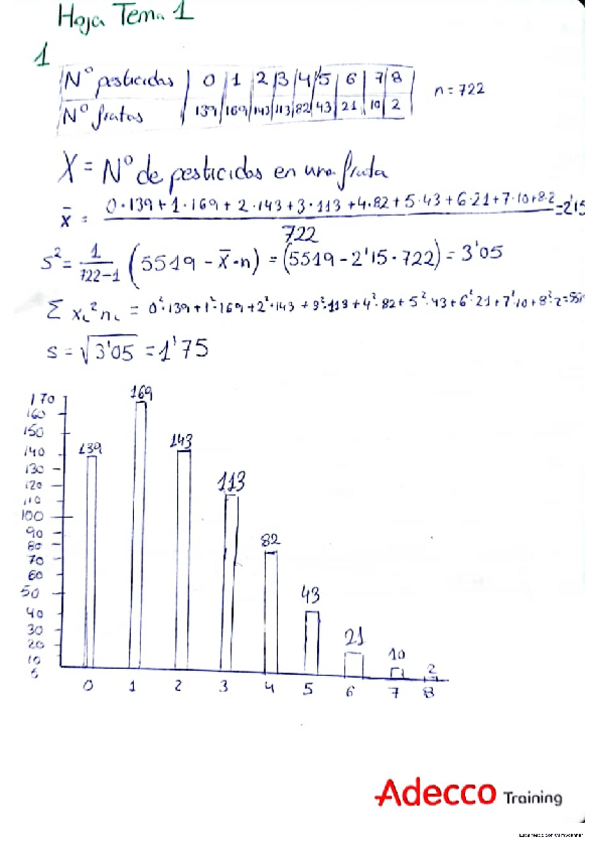 Hoja Tema 1
1
Nº pesticidas | 0 | 1 | 2 | 3 | 4 | 5 | 6 | 7 | 8
Nº frutas | 139 | 169 | 143 | 113 | 82 | 43 | 21 | 10 | 2
n = 722
X = Nº de pesticidas en una fruta
x̄ = 0·139+1·169+2·143+3·113+4·82+5·43+6·21+7·10+8·2 = 2'15
722
S² = 1/722-1 (5519 - x̄·n) = (5519 - 2'15·722) = 3'05
Σ xᵢ²nᵢ = 0²·139+1²·169+2²·143+3²·113+4²·82+5²·43+6²·21+7²·10+8²·2=
s = √3'05 = 1'75
170
160
150
140
130
120
110
100
90
80
70
60
50
40
30
20
10
139
169
143
113
82
43
21
10
2
0 1 2 3 4 5 6 7 8
Adecco Training